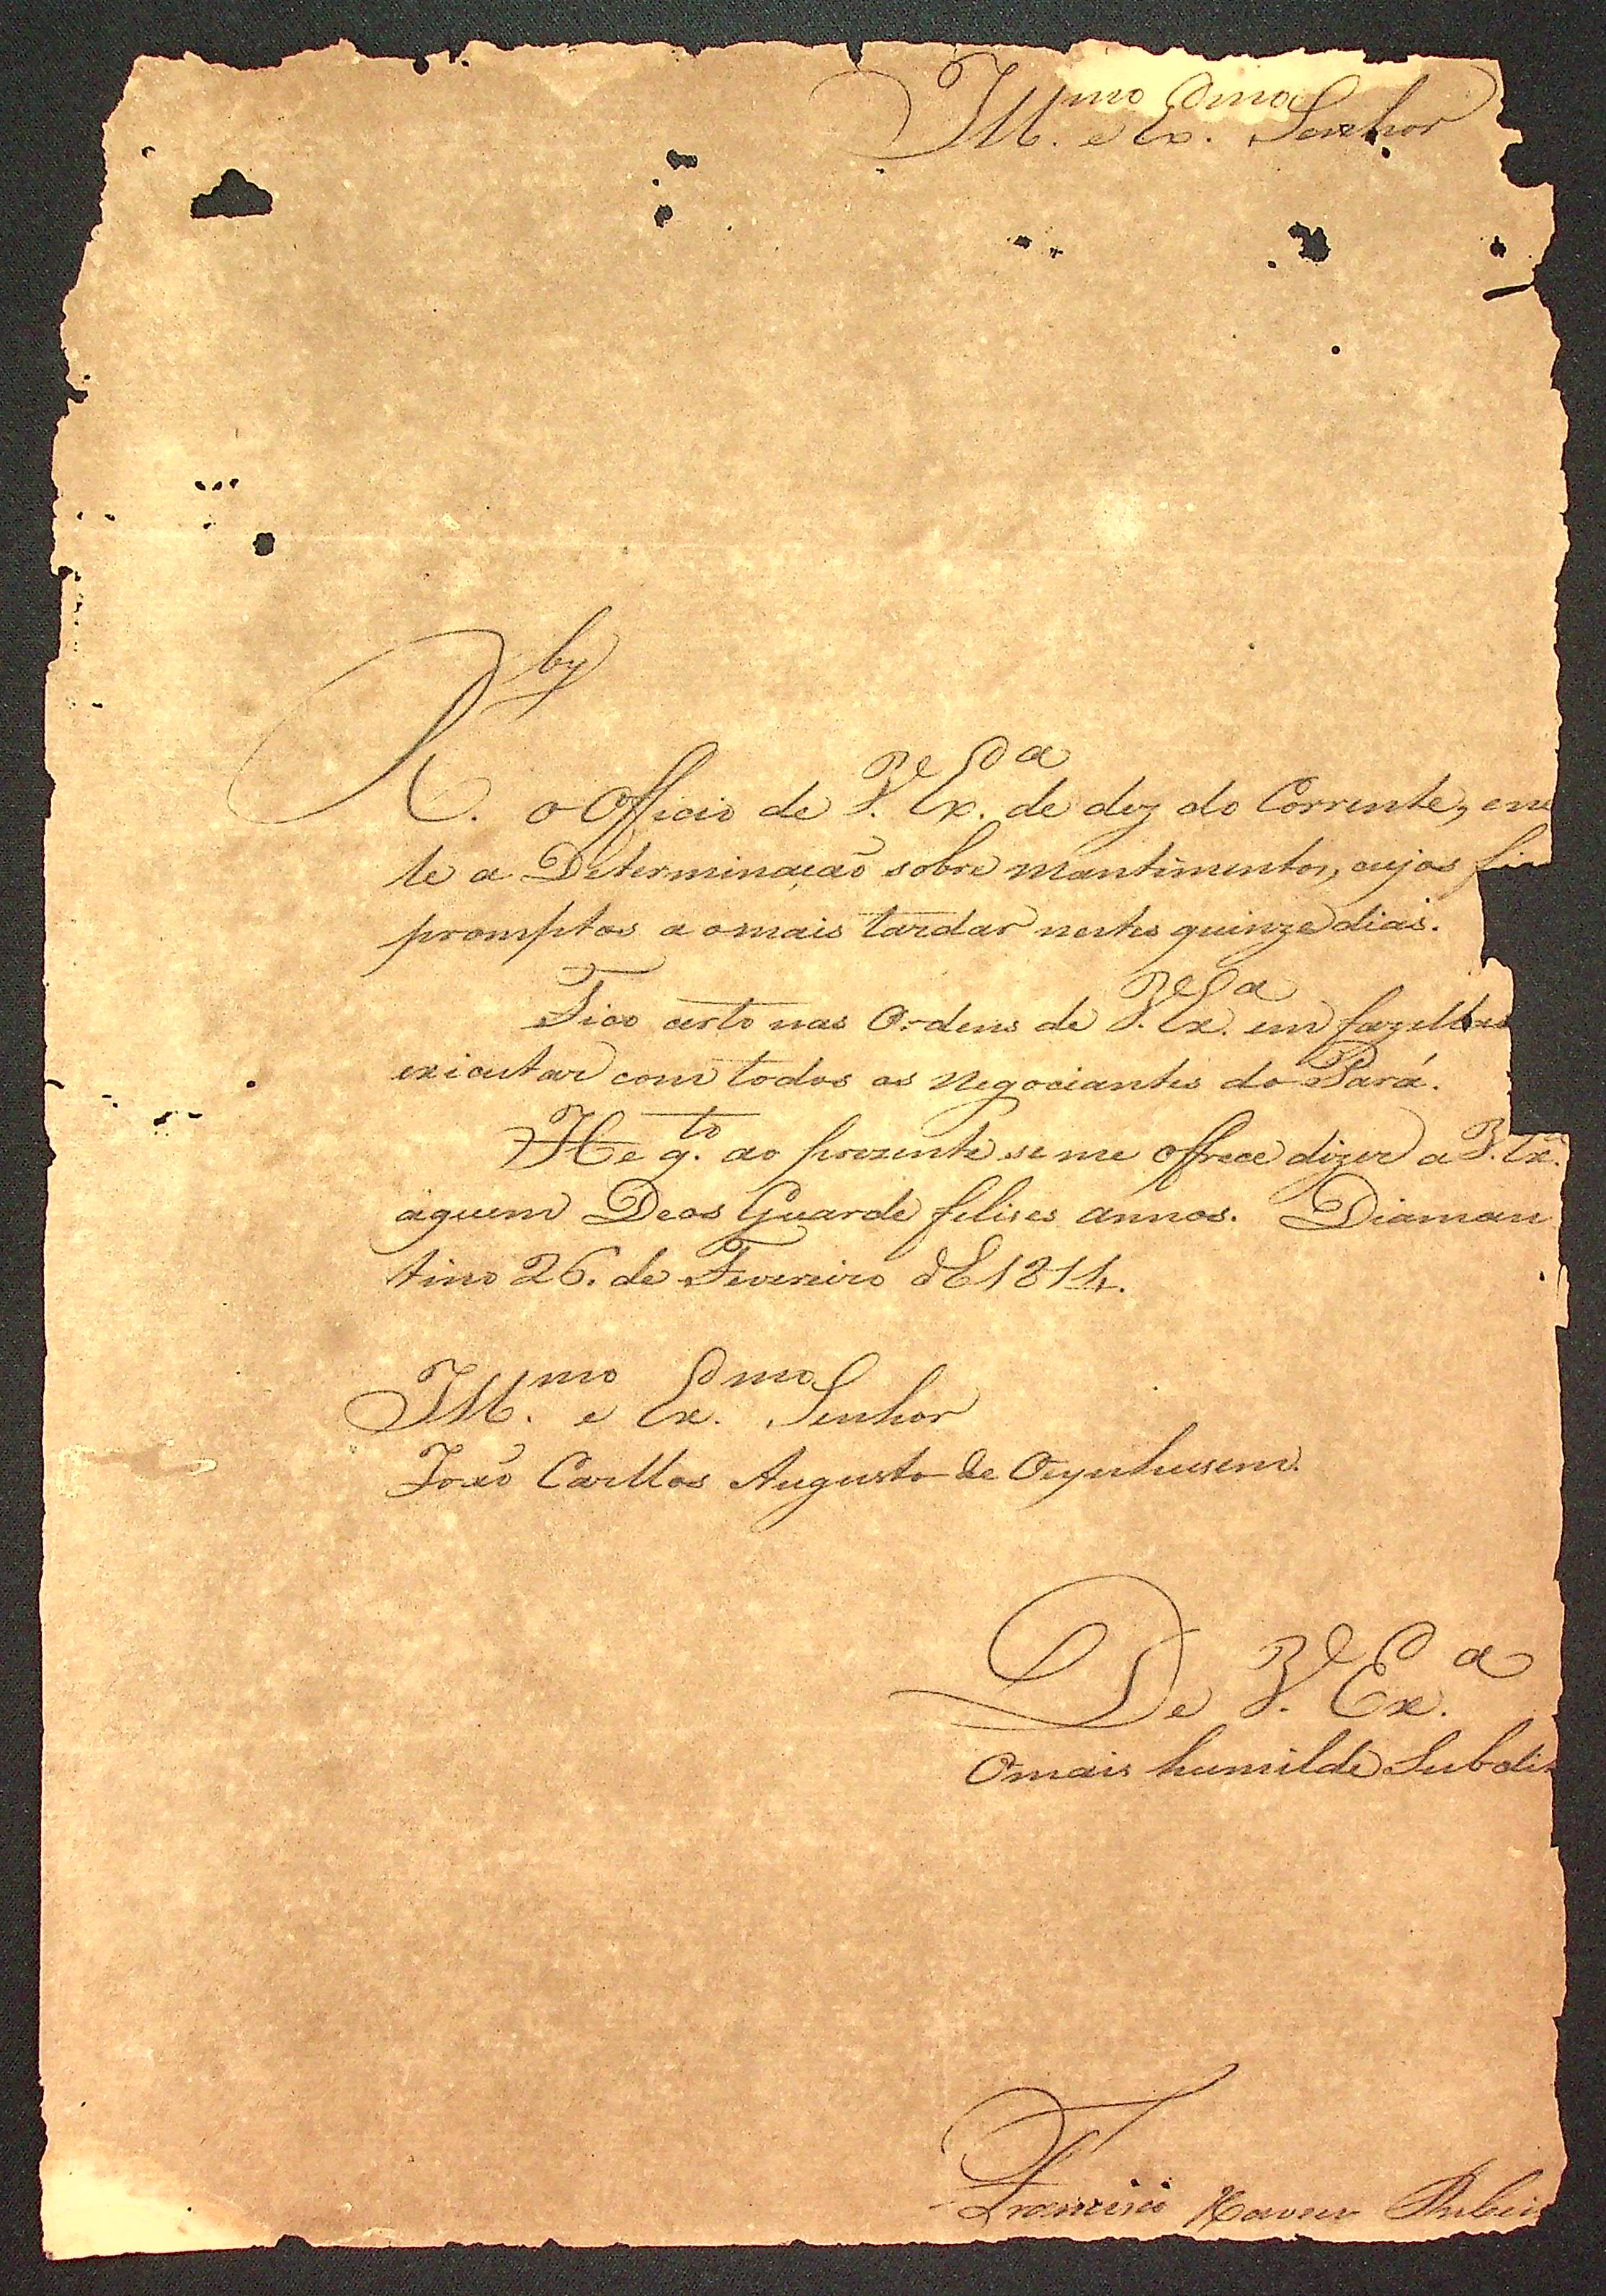 Ill.mo e Ex.mo Senhor
R.by
o Officio de V. Ex.a de dez do Corrente, em
te a Determinação sobre mantimentos, cujos fi
promptos a omais tardar nestes quinze dias.
Fico certo nas Ordens de V. Ex.a em fazellas
exicutar com todos os Negociantes do Pará.
He q.to ao prezente se me offrece dizer a V. Ex.
aquem Deos Guarde felises annos. Diaman
tino 26. de Fevereiro dE 1814.
Ill.mo e Ex.mo Senhor
João Carllos Augusto de Oeynhusem.
De V. Ex.a
Omais humilde Subdi
Francisco Xavier Ribei